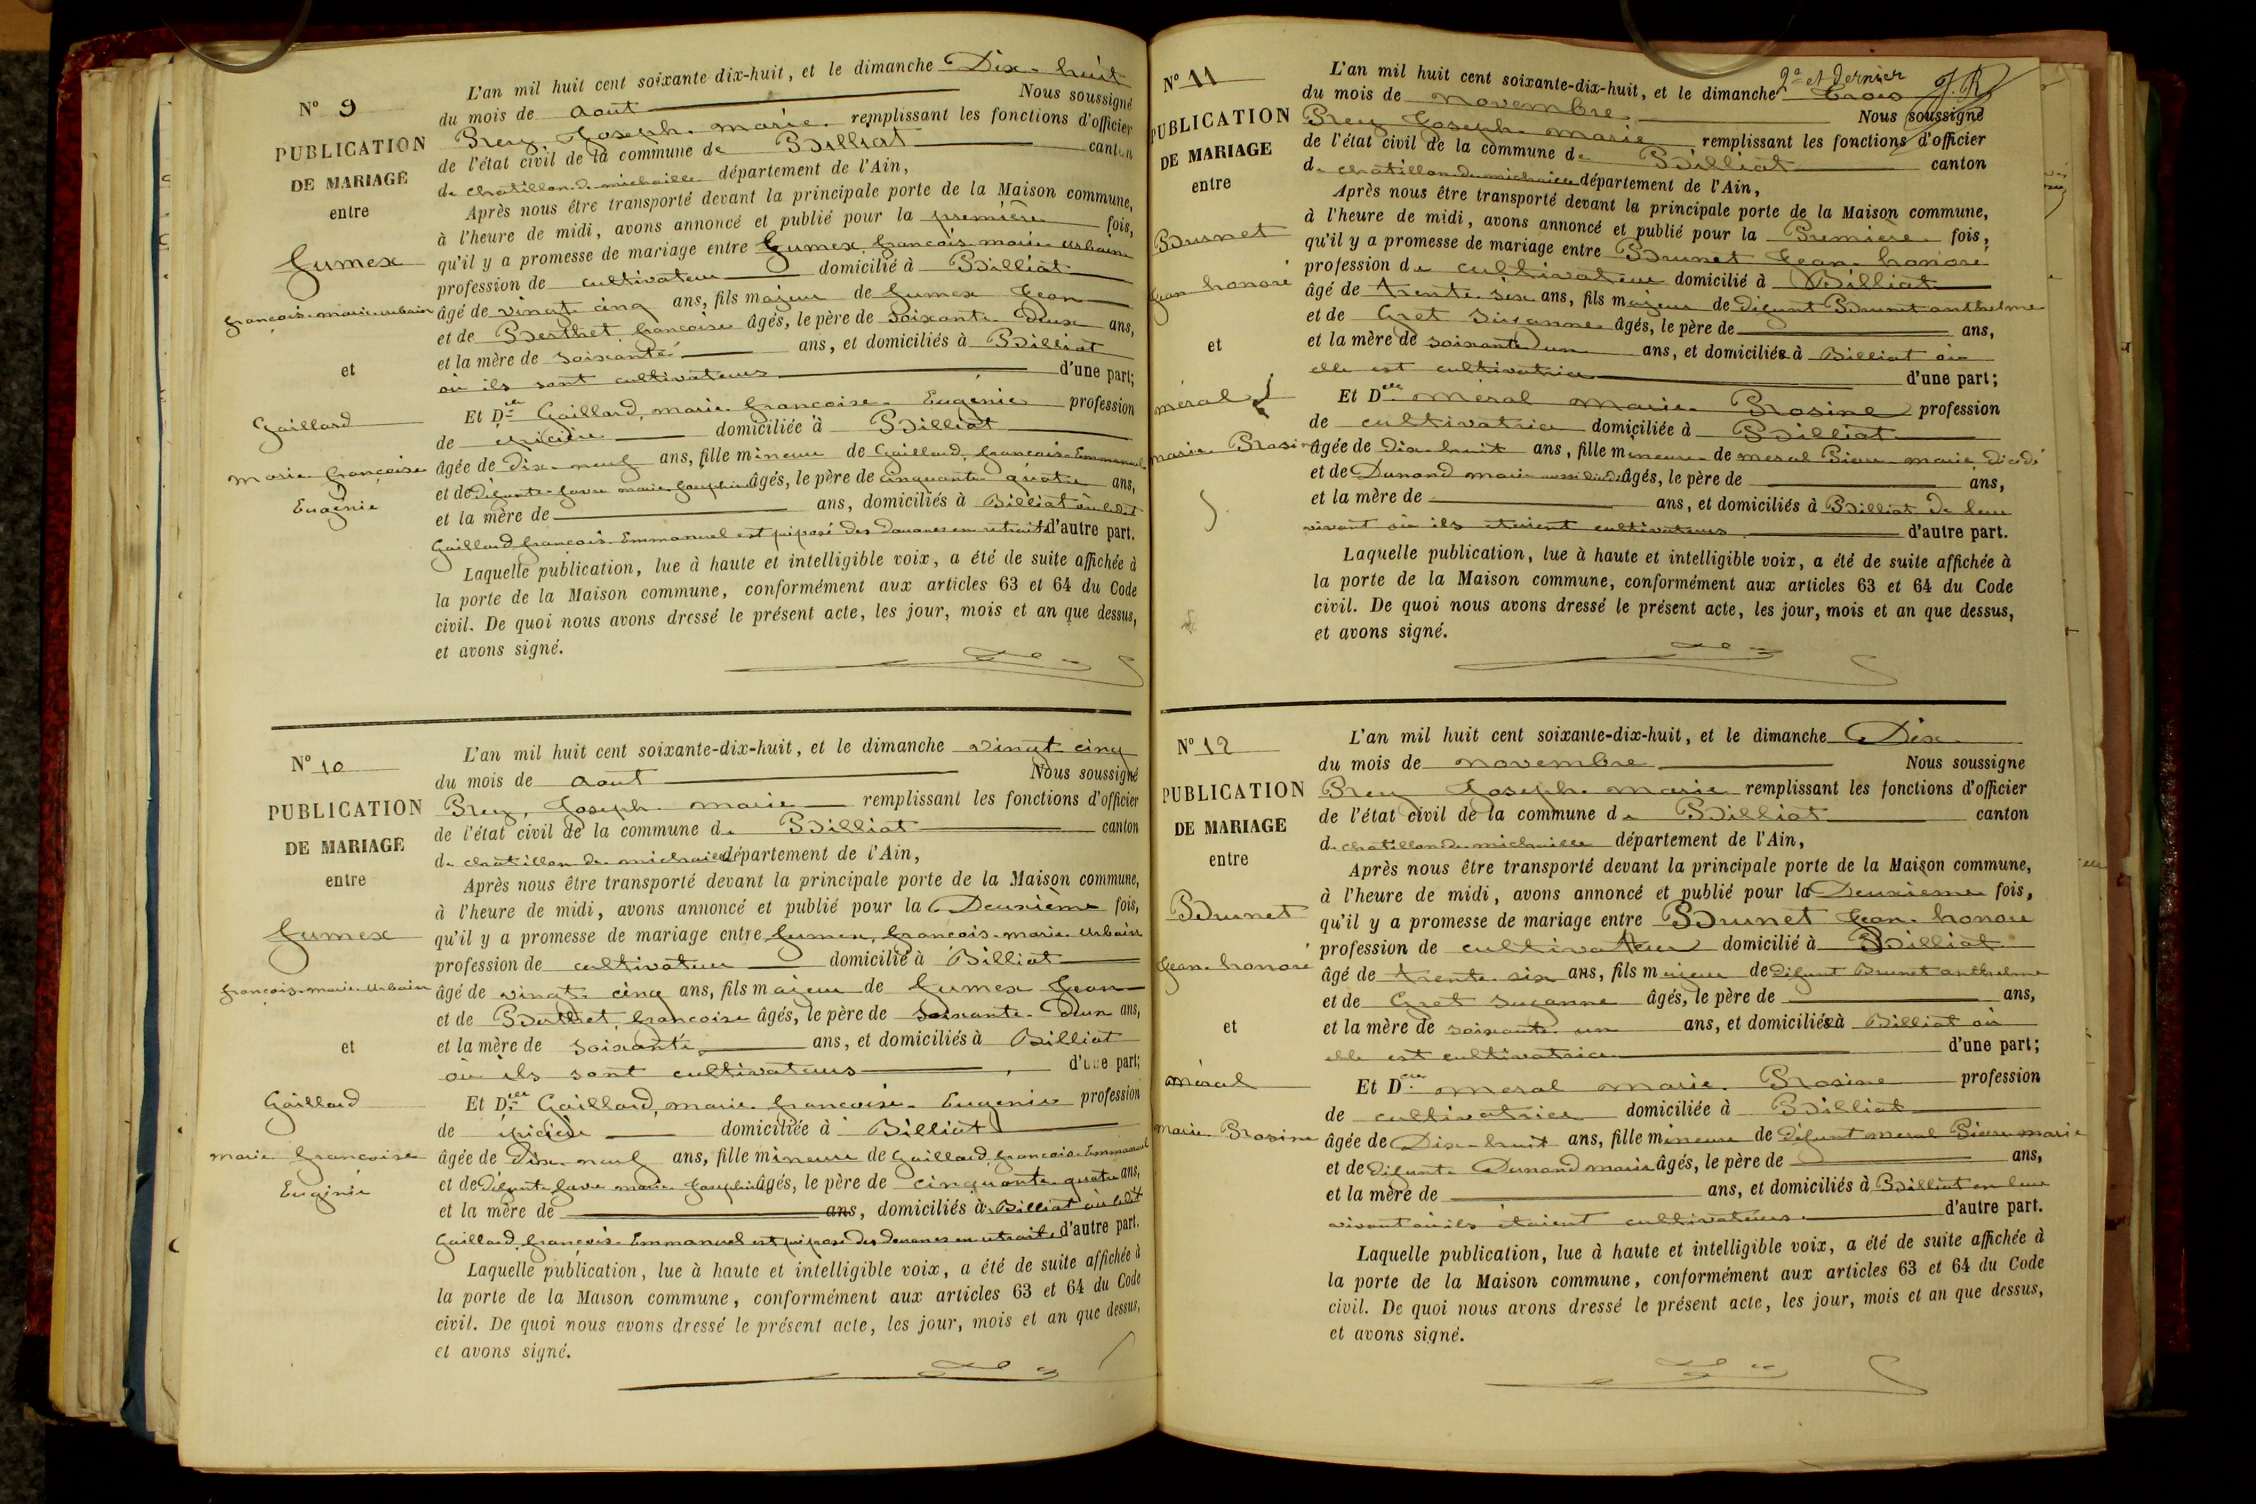 N° 9
PUBLICATION
DE MARIAGE
entre
Gumex
françois-marie-urbain
et
Gaillard
Marie françoise
Eugénie
L'an mil huit cent soixante-dix-huit, et le dimanche Dix-huit
du mois de Août Nous soussigné
Prey, Joseph-marie remplissant les fonctions d'officier
de l'état civil de la commune de Billiat canton
de châtillon de michaille département de l'Ain,
Après nous être transporté devant la principale porte de la Maison commune,
à l'heure de midi, avons annoncé et publié pour la première fois,
qu'il y a promesse de mariage entre Gumex, françois-marie urbain
profession de cultivateur domicilié à Billiat
âgé de vingt cinq ans, fils majeur de Gumex Jean
et de Berthet françoise âgés, le père de soixante-Deux ans,
et la mère de soixante ans, et domiciliés à Billiat
où ils sont cultivateurs d'une part;
Et Delle Gaillard, marie-françoise-Eugénie profession
de épicière domiciliée à Billiat
âgée de dix-neuf ans, fille mineure de Gaillard, françois-Emmanuel
et de Défunte favre marie Josephine âgés, le père de cinquante quatre ans,
et la mère de ans, domiciliés à Billiat où ledit
Gaillard françois-Emmanuel est préposé des Douanes en retraite d'autre part.
Laquelle publication, lue à haute et intelligible voix, a été de suite affichée à
la porte de la Maison commune, conformément aux articles 63 et 64 du Code
civil. De quoi nous avons dressé le présent acte, les jour, mois et an que dessus,
et avons signé.
N° 10
PUBLICATION
DE MARIAGE
entre
Gumex
françois-marie-urbain
et
Gaillard
marie françoise
Eugénie
L'an mil huit cent soixante-dix-huit, et le dimanche vingt cinq
du mois de Août Nous soussigné
Prey, Joseph-marie remplissant les fonctions d'officier
de l'état civil de la commune de Billiat canton
de châtillon de michaille département de l'Ain,
Après nous être transporté devant la principale porte de la Maison commune,
à l'heure de midi, avons annoncé et publié pour la Deuxième fois,
qu'il y a promesse de mariage entre Gumex, françois-marie urbain
profession de cultivateur domicilié à Billiat
âgé de vingt-cinq ans, fils majeur de Gumex Jean
et de Berthet, françoise âgés, le père de soixante-Deux ans,
et la mère de soixante ans, et domiciliés à Billiat
où ils sont cultivateurs d'une part;
Et Delle Gaillard, marie-françoise-Eugénie profession
de épicière domiciliée à Billiat
âgée de dix-neuf ans, fille mineure de Gaillard, françois-Emmanuel
et de Défunte favre marie Josephine âgés, le père de cinquante quatre ans,
et la mère de ans, domiciliés à Billiat où ledit
Gaillard, françois-Emmanuel est préposé des douanes en retraite d'autre part.
Laquelle publication, lue à haute et intelligible voix, a été de suite affichée à
la porte de la Maison commune, conformément aux articles 63 et 64 du Code
civil. De quoi nous avons dressé le présent acte, les jour, mois et an que dessus,
et avons signé.
N° 11
PUBLICATION
DE MARIAGE
entre
Brunet
Jean honoré
et
méral
marie Prosine
et dernier J.R
L'an mil huit cent soixante-dix-huit, et le dimanche trois
du mois de novembre Nous soussigné
Prey Joseph-marie remplissant les fonctions d'officier
de l'état civil de la commune de Billiat canton
de châtillon de michaille département de l'Ain,
Après nous être transporté devant la principale porte de la Maison commune,
à l'heure de midi, avons annoncé et publié pour la Première fois,
qu'il y a promesse de mariage entre Brunet Jean-honoré
profession de cultivateur domicilié à Billiat
âgé de trente-six ans, fils majeur de défunt Brunet anthelme
et de Gret Suzanne âgés, le père de ans,
et la mère de soixante un ans, et domiciliés à Billiat où
elle est cultivatrice d'une part;
Et Delle méral marie-Prosine profession
de cultivatrice domiciliée à Billiat
âgée de dix-huit ans, fille mineure de meral Pierre marie, décédé
et de Dunand marie aussi décédée âgés, le père de ans,
et la mère de ans, et domiciliés à Billiat de leur
vivant où ils étaient cultivateurs d'autre part.
Laquelle publication, lue à haute et intelligible voix, a été de suite affichée à
la porte de la Maison commune, conformément aux articles 63 et 64 du Code
civil. De quoi nous avons dressé le présent acte, les jour, mois et an que dessus,
et avons signé.
N° 12
PUBLICATION
DE MARIAGE
entre
Brunet
Jean-honoré
et
méral
marie Prosine
L'an mil huit cent soixante-dix-huit, et le dimanche Dix
du mois de novembre Nous soussigné
Prey Joseph-marie remplissant les fonctions d'officier
de l'état civil de la commune de Billiat canton
de châtillon de michaille département de l'Ain,
Après nous être transporté devant la principale porte de la Maison commune,
à l'heure de midi, avons annoncé et publié pour la Deuxième fois,
qu'il y a promesse de mariage entre Brunet Jean-honoré
profession de cultivateur domicilié à Billiat
âgé de trente-six ans, fils majeur de défunt Brunet anthelme
et de Gret Suzanne âgés, le père de ans,
et la mère de soixante-un ans, et domiciliés à Billiat où
elle est cultivatrice d'une part;
Et Delle meral marie-Prosine profession
de cultivatrice domiciliée à Billiat
âgée de Dix-huit ans, fille mineure de défunt meral Pierre marie
et de défunte Dunand marie âgés, le père de ans,
et la mère de ans, et domiciliés à Billiat en leur
vivant où ils étaient cultivateurs d'autre part.
Laquelle publication, lue à haute et intelligible voix, a été de suite affichée à
la porte de la Maison commune, conformément aux articles 63 et 64 du Code
civil. De quoi nous avons dressé le présent acte, les jour, mois et an que dessus,
et avons signé.